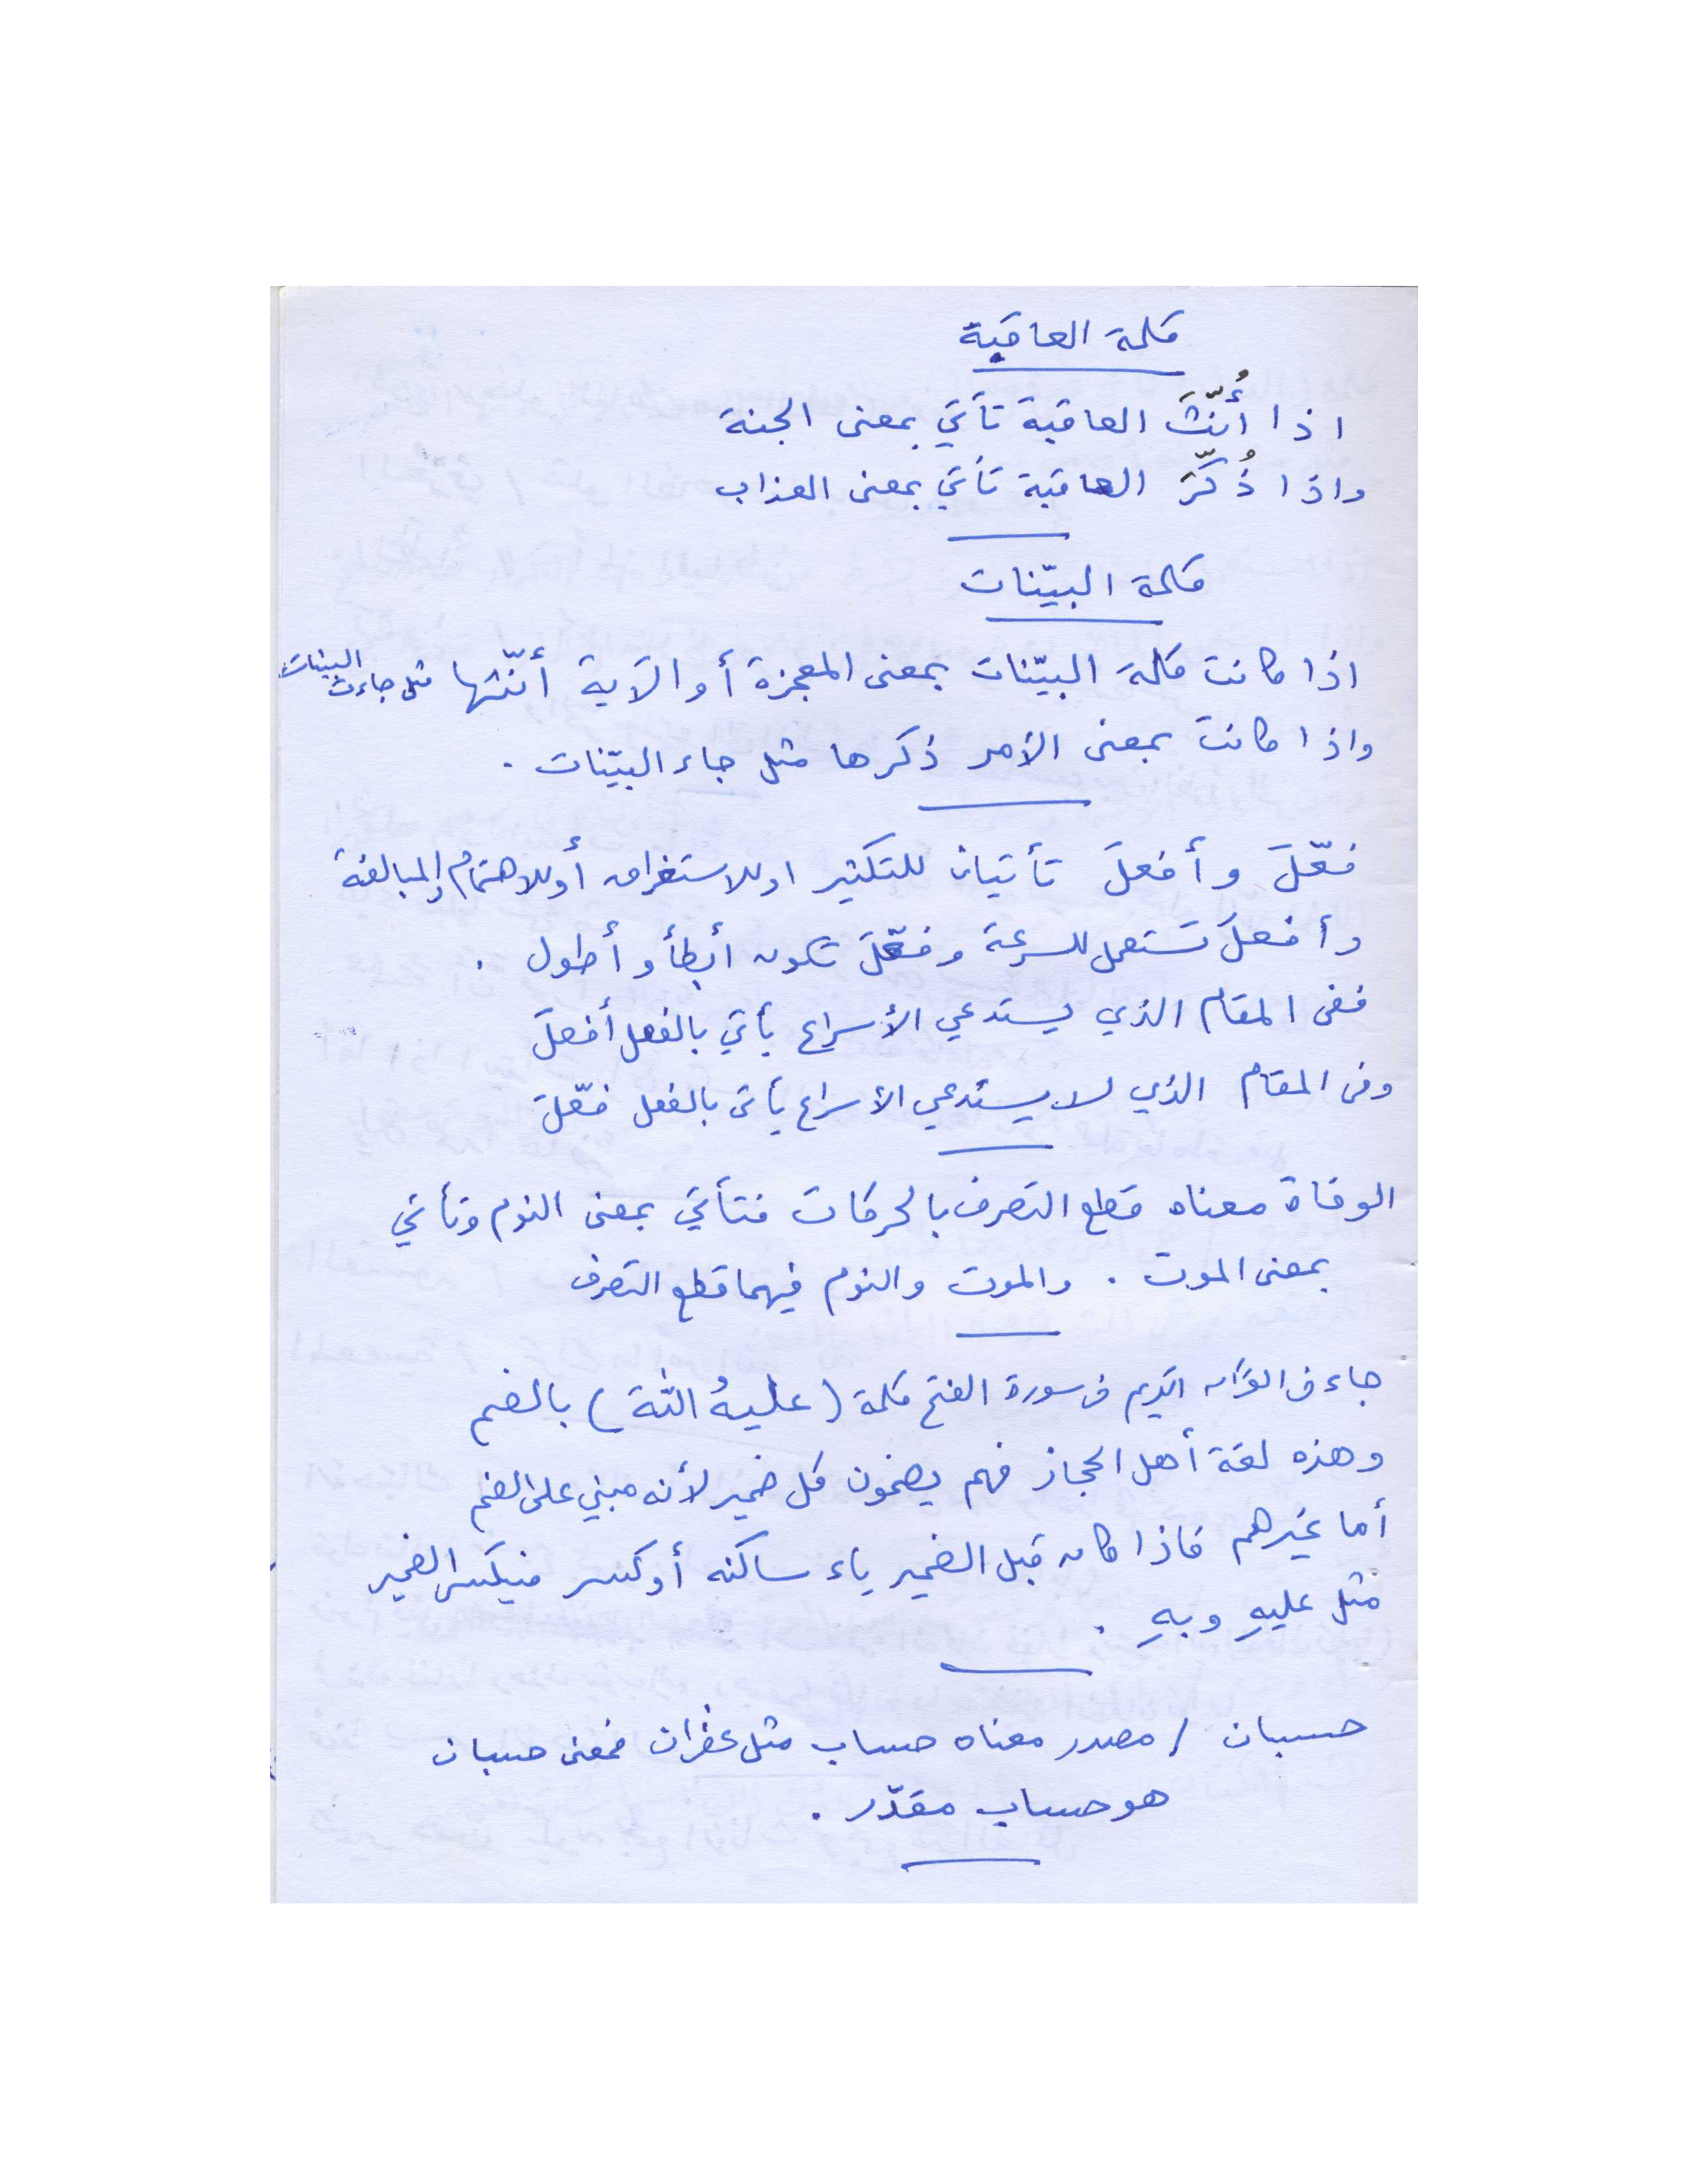 كلمة العاقبة
اذا أُنّثَ العاقبة تأتي بمعنى الجنة
واذا ذُكّرَ العاقبة تأتي بمعنى العذاب
كلمة البيّنات
اذا كانت كلمة البيّنات بمعنى المعجزة أو الآية أنّثها مثل جاءت البينات
واذا كانت بمعنى الأمر ذكرها مثل جاء البيّنات .
فعّلَ وأفعلَ تأتيان للتكثير او للاستغراق أو للاهتمام والمبالغة
وأفعلَ تستعمل للسرعة وفعّلَ تكون أبطأ وأطول .
ففى المقام الذي يستدعي الأسراع يأتي بالفعل أفعلَ
وفى المقام الذي لا يستدعي الأسراع يأتى بالفعل فعّلَ
الوفاة معناه قطع التصرف بالحركات فتأتي بمعنى النوم وتأتي
بمعنى الموت . والموت والنوم فيهما قطع التصرف
جاء فى القرآن الكريم فى سورة الفتح كلمة (عليهُ اللّٰهَ) بالضم
وهذه لغة أهل الحجاز فهم يضمون كل ضمير لأنه مبني على الضم
أما غيرهم فاذا كان قبل الضمير ياء ساكنه أو كسر فيكسر الضمير
مثل عليهِ وبهِ .
حسبان / مصدر معناه حساب مثل غفران فمعنى حسبان
هو حساب مقدّر .